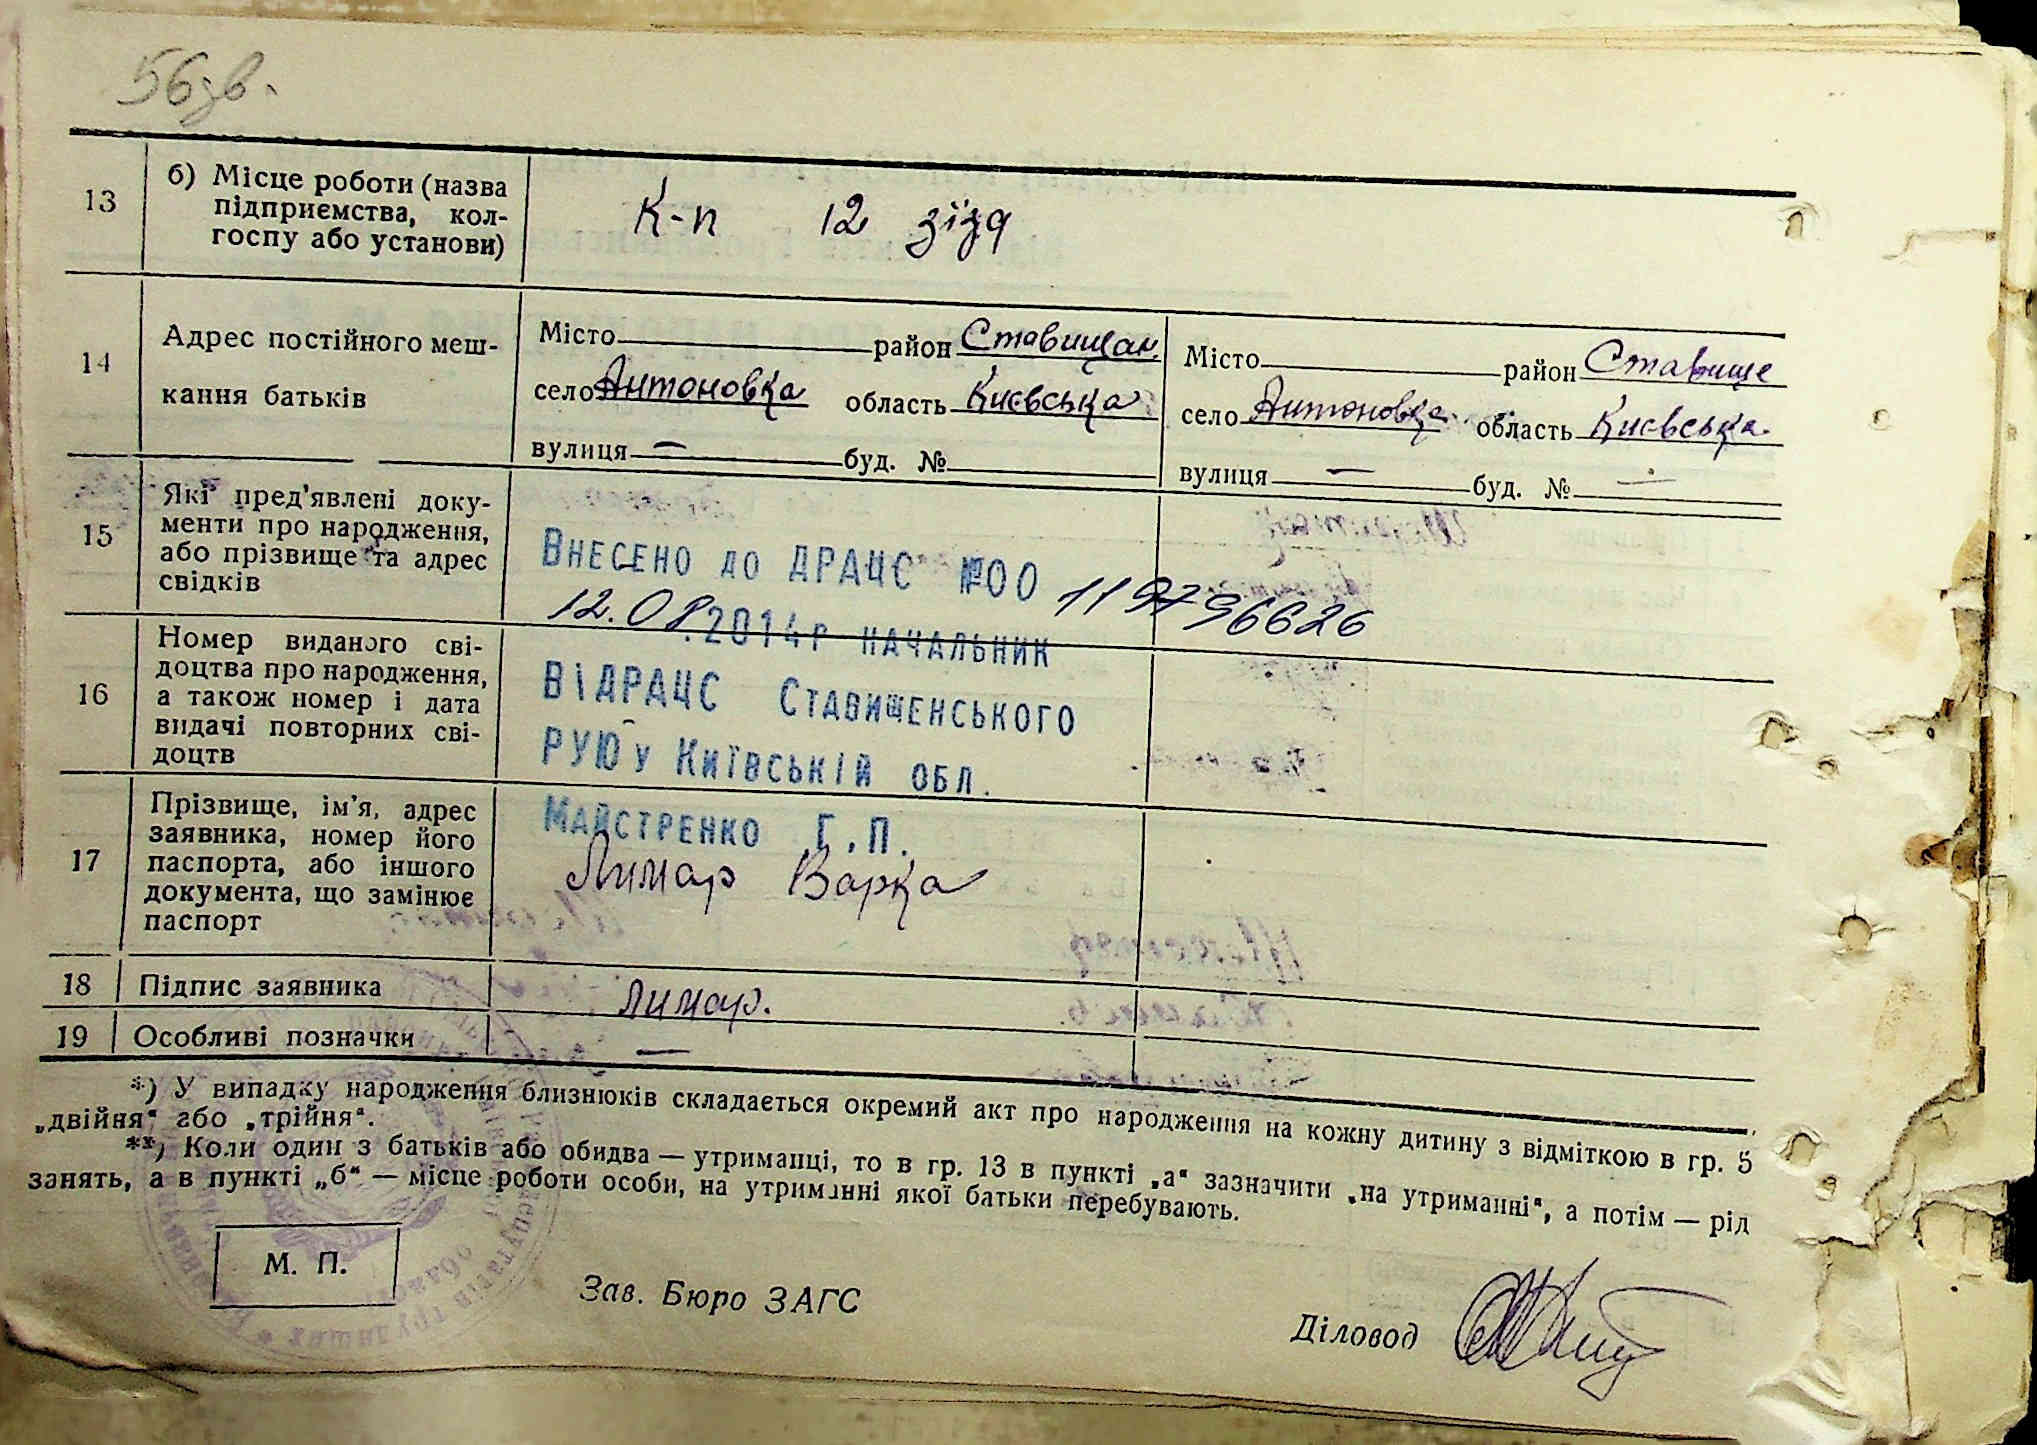 56зв.
13
б) Місце роботи (назва
підприємства, кол-
госпу або установи)
К-п 12 зїзд
14
Адрес постійного меш-
кання батьків
Місто район Ставищан.
село Антоновка область Києвська
вулиця — буд. №
Місто район Ставище
село Антоновка область Києвська
вулиця — буд. № —
15
Які пред'явлені доку-
менти про народження,
або прізвище та адрес
свідків
Внесено до ДРАЦС №00 119796626
12.08.2014г начальник
16
Номер виданого сві-
доцтва про народження,
а також номер і дата
видачі повторних сві-
доцтв
ВіДРАЦС Ставищенського
РУЮ у Київській обл.
17
Прізвище, ім'я, адрес
заявника, номер його
паспорта, або іншого
документа, що замінює
паспорт
Майстренко Г.П.
Лимар Варка
18 Підпис заявника
Лимар.
19 Особливі позначки —
*) У випадку народження близнюків складається окремий акт про народження на кожну дитину з відміткою в гр. 5
„двійня“ або „трійня“.
**) Коли один з батьків або обидва — утриманці, то в гр. 13 в пункті „а“ зазначити „на утриманні“, а потім — рід
занять, а в пункті „б“ — місце роботи особи, на утриманні якої батьки перебувають.
М. П.
Зав. Бюро ЗАГС
Діловод